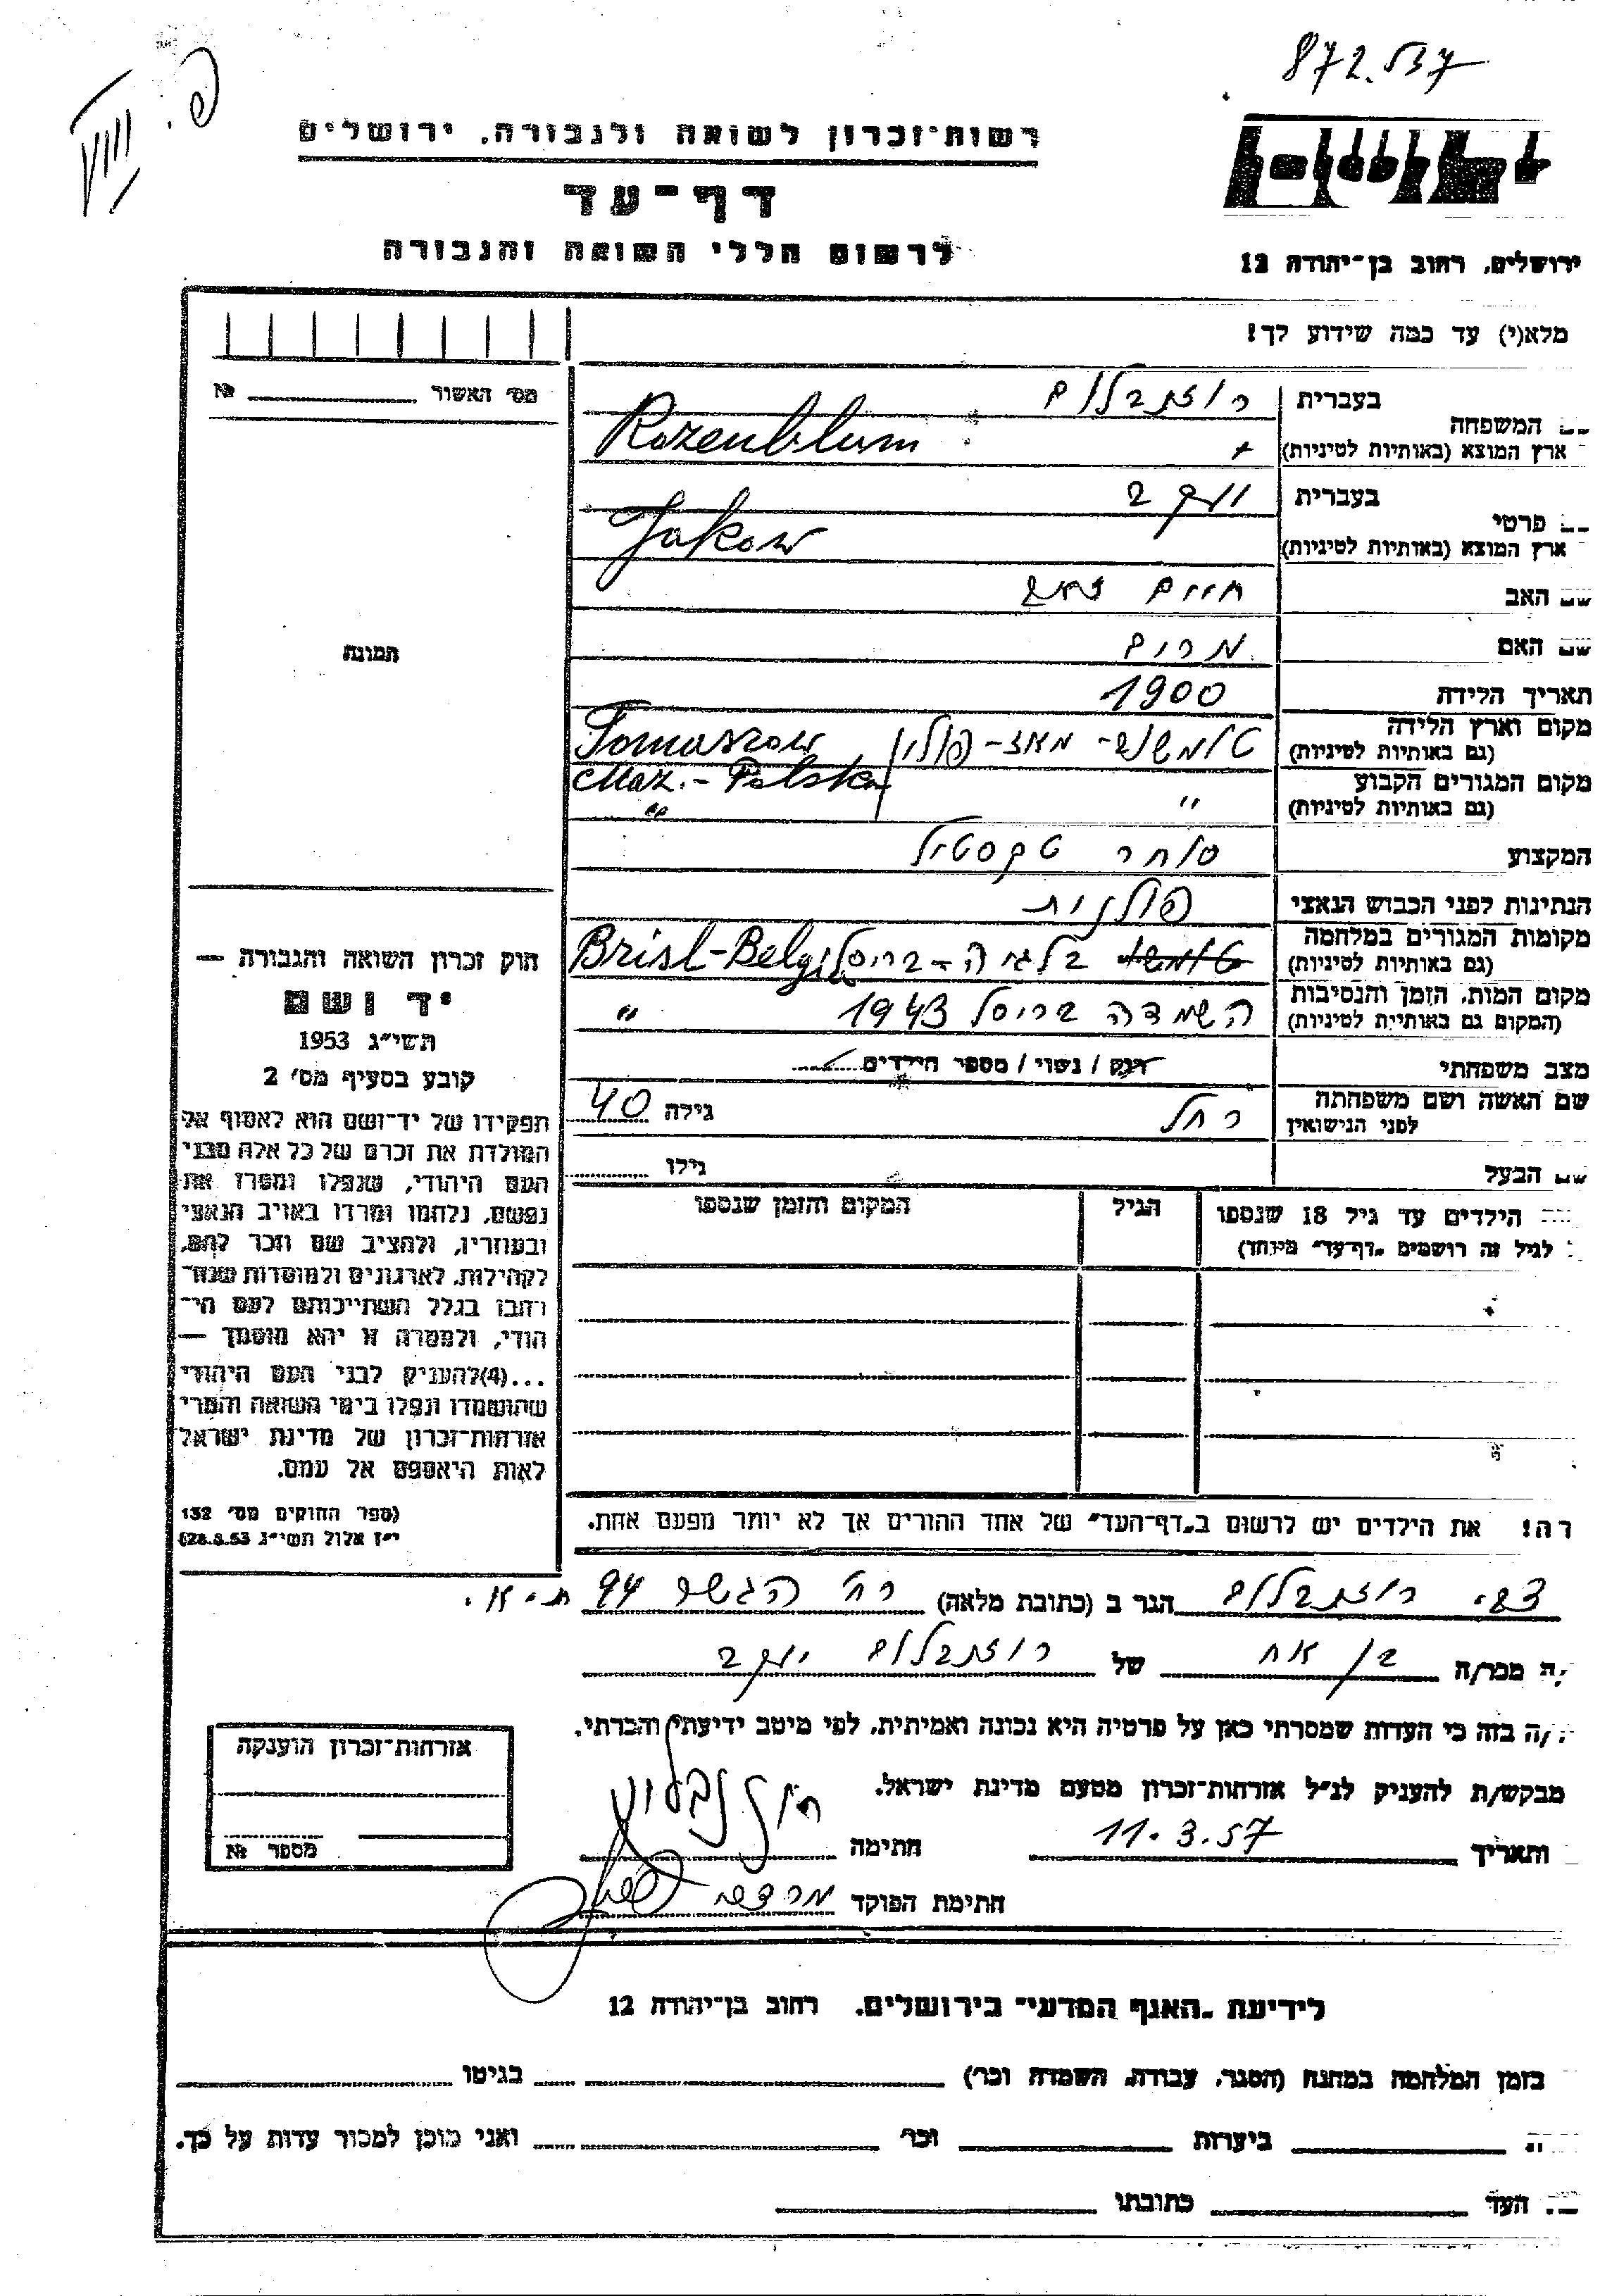 872.537
רשות־זכרון לשואה ולגבורה. ירושלים
דף-עד
לרשום חללי השואה והגבורה
ירושלים, רחוב בן־יהודה 12
מלא(י) עד כמה שידוע לך!
מס׳ האשור № 
בעברית רוזנבלום
המשפחה
ארץ המוצא (באותיות לטיניות) Rozenblum
בעברית יעקב
פרטי
ארץ המוצא (באותיות לטיניות) Jakow
שם האב חיים
שם האם מרים
תאריך הלידה 1900
מקום וארץ הלידה (גם באותיות לטיניות) טומשוב - מאז - פולין Tomaszow Maz. - Polska
מקום המגורים הקבוע (גם באותיות לטיניות) " "
המקצוע סוחר טקסטיל
הנתינות לפני הכבוש הנאצי פולנית
מקומות המגורים במלחמה (גם באותיות לטיניות) בלגיה - בריסל Brisl-Belgi
מקום המות, הזמן והנסיבות (המקום גם באותיות לטיניות) השמדה בריסל 1943 "
מצב משפחתי רוק / נשוי / מספר הילדים
שם האשה ושם משפחתה לפני הנישואין רחל גילה 40
שם הבעל גילו
הילדים עד גיל 18 שנספו הגיל המקום והזמן שנספו
לגיל זה רושמים „דף־עד״ מיוחד)
תמונת
חוק זכרון השואה והגבורה —
יד ושם
תשי״ג 1953
קובע בסעיף מס׳ 2
תפקידו של יד־ושם הוא לאסוף אל
המולדת את זכרם של כל אלה מבני
העם היהודי, שנפלו ומסרו את
נפשם, נלחמו ומרדו באויב הנאצי
ובעוזריו, ולהציב שם וזכר להם,
לקהילות, לארגונים ולמוסדות שנח־
רבו בגלל השתייכותם לעם הי־
הודי, ולמטרה זו יהא מוסמך —
...(4)להעניק לבני העם היהודי
שהושמדו ונפלו בימי השואה והמרי
אזרחות־זכרון של מדינת ישראל
לאות היאספם אל עמם.
(ספר החוקים מס׳ 132
י״ז אלול תשי״ג 28.8.53)
רה! את הילדים יש לרשום ב„דף־העד״ של אחד ההורים אך לא יותר מפעם אחת.
צבי רוזנבלום הגר ב (כתובת מלאה) רח׳ הגשר 94 ת.א.
ה מכר/ה בן אח של רוזנבלום יעקב
/ה בזה כי העדות שמסרתי כאן על פרטיה היא נכונה ואמיתית, לפי מיטב ידיעתי והכרתי.
מבקש/ת להעניק לנ״ל אזרחות־זכרון מטעם מדינת ישראל.
והתאריך 11.3.57 חתימה
חתימת הפוקד
אזרחות־זכרון הוענקה
מספר №
לידיעת „האגף המדעי״ בירושלים. רחוב בן־יהודה 12
בזמן המלחמה במחנה (הסגר, עבודה, השמדה וכר) בגיטו
ביערות וכר ואני מוכן למסור עדות על כך.
העד כתובתו